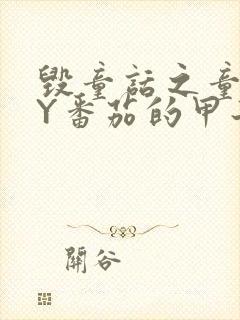 毁童话之童
Y番茄的甲
關谷